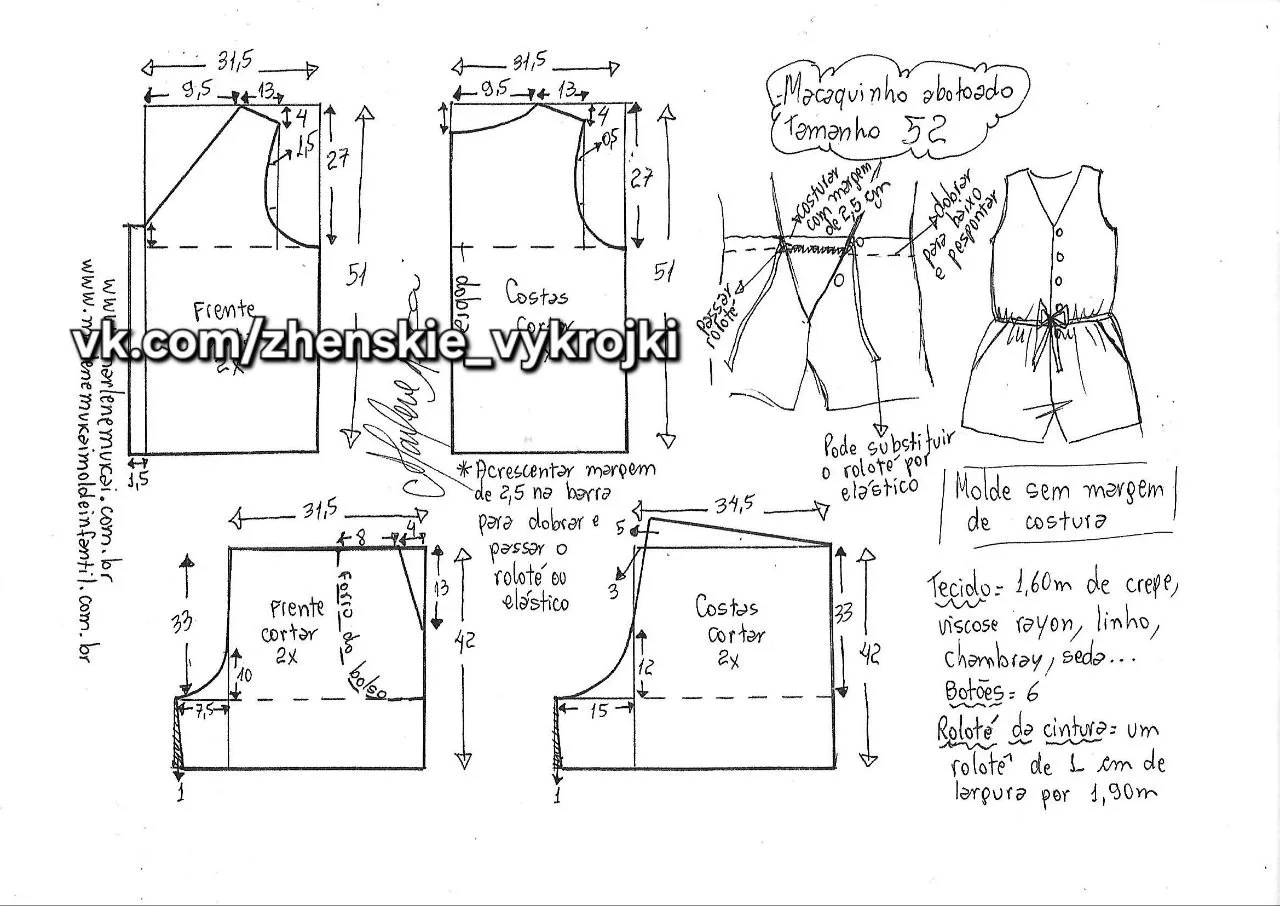 31,5
9,5
13
4
1,5
27
51
Frente
2x
1,5
31,5
9,5
13
4
0,5
27
51
dobra
Costas
-Macaquinho abotoado
Tamanho 52
costurar
com margem
de 2,5 cm
dobrar
para baixo
e pespontar
passar
roloté
Pode substituir
o roloté por
elástico
vk.com/zhenskie_vykrojki
www.marlenemukai.com.br
www.marlenemukaimoldeinfantil.com.br
* Acrescentar margem
de 2,5 na barra
para dobrar e
passar o
roloté ou
elástico
Molde sem margem
de costura
31,5
8
4
33
Frente
cortar
2x
Forro do bolso
13
42
10
7,5
1
34,5
5
3
Costas
cortar
2x
33
42
12
15
1
Tecido= 1,60m de crepe,
viscose rayon, linho,
chambray, seda...
Botões= 6
Roloté da cintura= um
roloté de 1 cm de
largura por 1,90m